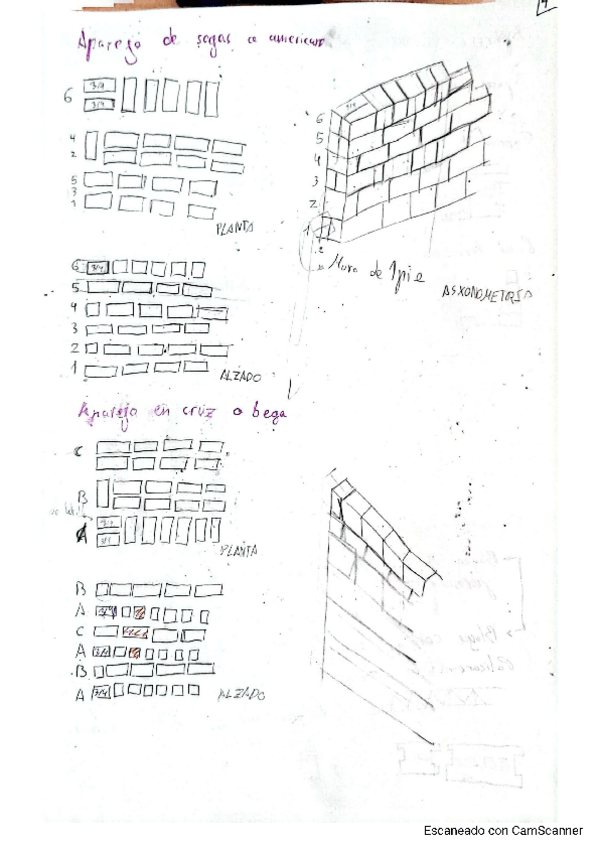 Aparejo de sogas o americano
6 3/4
3/4
4
2
5
3
1
PLANTA
6 3/4
5
4
3
2
1
ALZADO
3/4
6
5
4
3
2
1
Muro de 1 pie
ASXONOMETRIA
Aparejo en cruz o bega
C
B
A 3/4
3/4
PLANTA
B
A 3/4
C
A 3/4
B
A 3/4
ALZADO
Escaneado con CamScanner